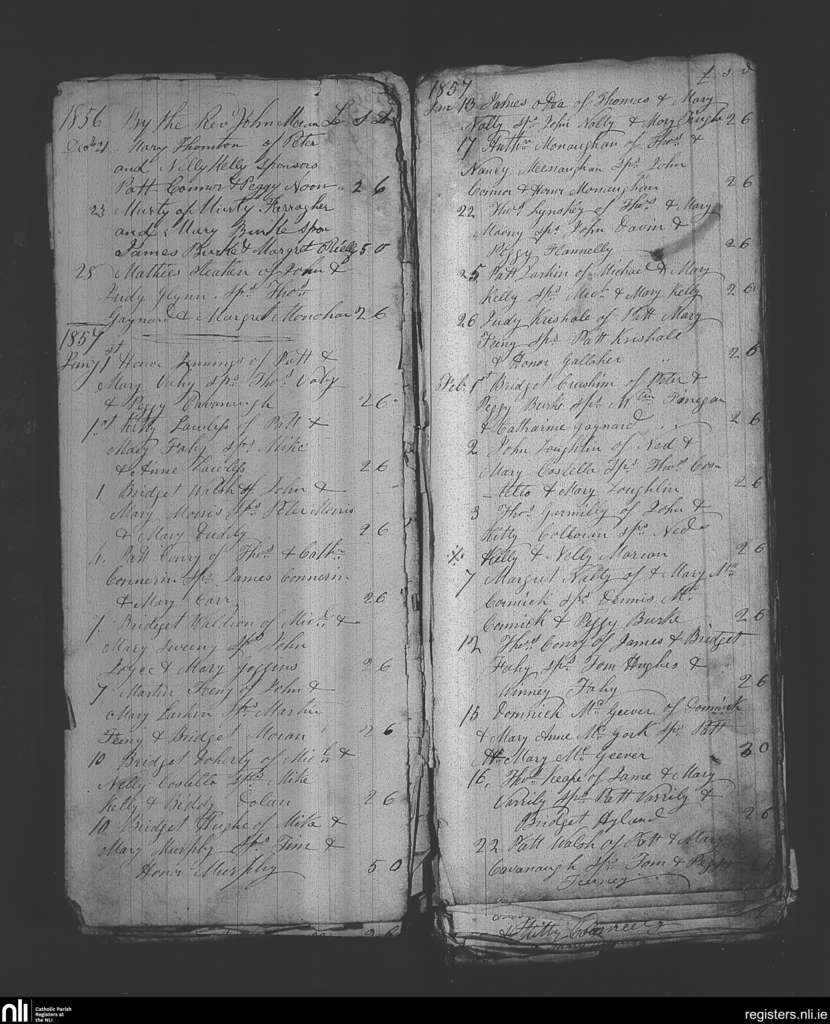 1856 By the Revd John Moran £ S d
Decbr 21 Mary Thornton of Peter
and Nelly Kelly Sponsors
Patt Connor & Peggy Noon 2 6
23 Murty of Murty Farragher
and Mary Burke spon
James Burke & Margret 5 0
25 Mathias Heaken of John &
Judy Glynn Sps Thos
Gaynard & Margret 2 6
1857
Jany 1st Honor Jennings of Patt &
Mary sps Thos
& Peggy Cavanaugh 2 6
1st Kitty Lawless of Patt &
Mary Fahy sps Mike
& Anne Lawless 2 6
1 Bridget Walsh of John &
Mary Morris Sps Peter Morris
& Mary 2 6
4 Patt Conry of Thos & Cathn
Connerin Sps James Connerin
& Mary Carr 2 6
7 Bridget Waldron of Michl &
Mary Sweeny Sps John
Joyce & Mary Goggins 2 6
7 Martin Feeny of John &
Mary Larkin Sps Martin
Feeny & Bridget Moran 2 6
10 Bridget Doherty of Michl &
Nelly Costello Sps Mike
Kelly & Biddy Dolan 2 6
10 Bridget Hughe of Mike &
Mary Murphy Sps Tim &
Honor Murphy 5 0
2 6
1857 £ s d
Jan 13 James of Thomas & Mary
Nally Sps John Nally & Mary 2 6
17 Monaughan of Thos &
Nancy Meenaughan Sps John
Connor & Honor Monaughan 2 6
22 Thos Lynskey of Thos & Mary
Moony sps John Davin &
Peggy Flannelly 2 6
25 Patt Larkin of Michael & Mary
Kelly Sps Micl & Mary Kelly 2 6
26 Judy Krishale of Patt Mary
Sps Patt Krishale
& Honor Gallaher 2 6
Feb 1st Bridget Cushin of Peter &
Peggy Burke sps Finegan
& Catharine Gaynard 2 6
2 John Loughlin of Ned &
Mary Costello Sps Thos Cos-
-tello & Mary Loughlin 2 6
3 Thos of John &
Kitty sps Ned
Kelly & Nelly Marion 2 6
7 Margret Nally of & Mary Mc
Cormick sps Dennis Mc
Cormick & Peggy Burke 2 6
12 Thos Conry of James & Bridget
Fahy Sps Tom Hughes &
Winney Fahy 2 6
15 Dominick Mc Geever of Dominick
& Mary Anne Mc Gork sps Patt
Mary Mc Geever 0
16 Thos Heape of Jame & Mary
Varrily sps Patt Varrily &
Bridget Hyland 2 6
22 Patt Walsh of Patt & Mary
Cavanaugh Sps Tom & Peggy
Tierney
& Kitty
nli Catholic Parish
Registers at
the NLI
registers.nli.ie